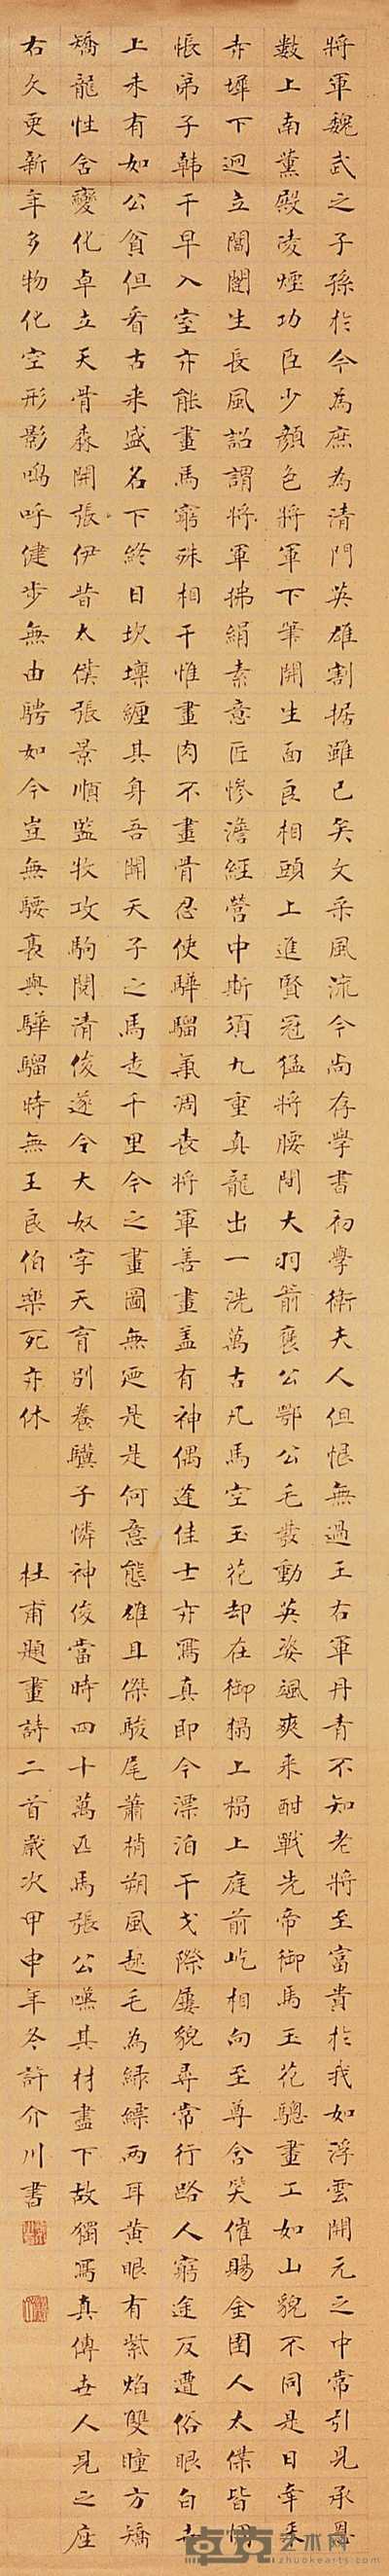 將軍魏武之子孫於今為庶為清門英雄割據雖已矣文采風流今尚存學書初學衛夫人但恨無過王右軍丹青不知老將至富貴於我如浮雲開元之中常引見承恩
數上南薰殿凌煙功臣少顏色將軍下筆開生面良相頭上進賢冠猛將腰間大羽箭褒公鄂公毛髮動英姿颯爽來酣戰先帝御馬玉花驄畫工如山貌不同是日牽來
赤墀下迥立閶闔生長風詔謂將軍拂絹素意匠慘澹經營中斯須九重真龍出一洗萬古凡馬空玉花却在御榻上榻上庭前屹相向至尊含笑催賜金圉人太僕皆惆
悵弟子韓干早入室亦能畫馬窮殊相干惟畫肉不畫骨忍使驊騮氣凋喪將軍善畫蓋有神偶逢佳士亦寫真即今漂泊干戈際屢貌尋常行路人窮途反遭俗眼白世
上未有如公貧但看古來盛名下終日坎壈纏其身吾聞天子之馬走千里今之畫圖無乃是是何意態雄且傑駿尾蕭梢朔風起毛為綠縹兩耳黃眼有紫焰雙瞳方矯
矯龍性含變化卓立天骨森開張伊昔太僕張景順監牧攻駒閱清俊遂令大奴字天育別養驥子憐神俊當時四十萬匹馬張公嘆其材盡下故獨寫真傳世人見之座
右久更新年多物化空形影嗚呼健步無由騁如今豈無騕褭與驊騮時無王良伯樂死亦休 杜甫題畫詩二首歲次甲申年冬許介川書
卓克艺术网
www.zhuokearts.com